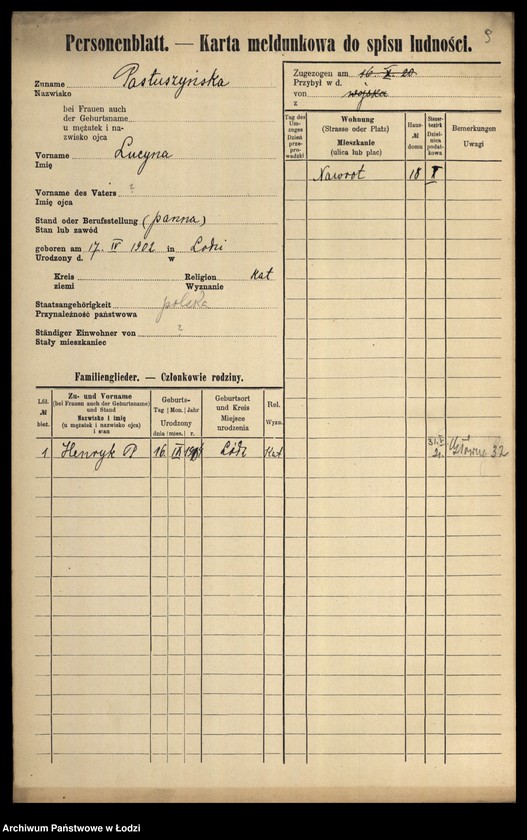 9
Personenblatt. — Karta meldunkowa do spisu ludności.
Zuname Pastuszyńska
Nazwisko
bei Frauen auch
der Geburtsname
u mężatek i na-
zwisko ojca
Vorname Lucyna
Imię
Vorname des Vaters ?
Imię ojca
Stand oder Berufsstellung (panna)
Stan lub zawód
geboren am 17. IV 1902 in Łodzi
Urodzony d. w
Kreis Religion Kat
ziemi Wyznanie
Staatsangehörigkeit polska
Przynależność państwowa
Ständiger Einwohner von ?
Stały mieszkaniec
Zugezogen am 16. X. 20.
Przybył w d.
von wojska
z
Tag des Um-zuges Dzień prze-prowadzki
Wohnung
(Strasse oder Platz)
Mieszkanie
(ulica lub plac)
Haus-
№
domu
Steuer-
bezirk
Dzielnica
podat-
kowa
Bemerkungen
Uwagi
Nawrot 18 X
31.V 21. Główna 32
Familienglieder. — Członkowie rodziny.
Lfd.
№
bież.
Zu- und Vorname
(bei Frauen auch der Geburtsname)
und Stand
Nazwisko i imię
(u mężatek i nazwisko ojca)
i stan
Geburts-
Tag Mon. Jahr
Urodzony
dnia mies. r.
Geburtsort
und Kreis
Miejsce
urodzenia
Rel.
Wyzn.
1 Henryk P 16 Łódź Kat
Archiwum Państwowe w Łodzi